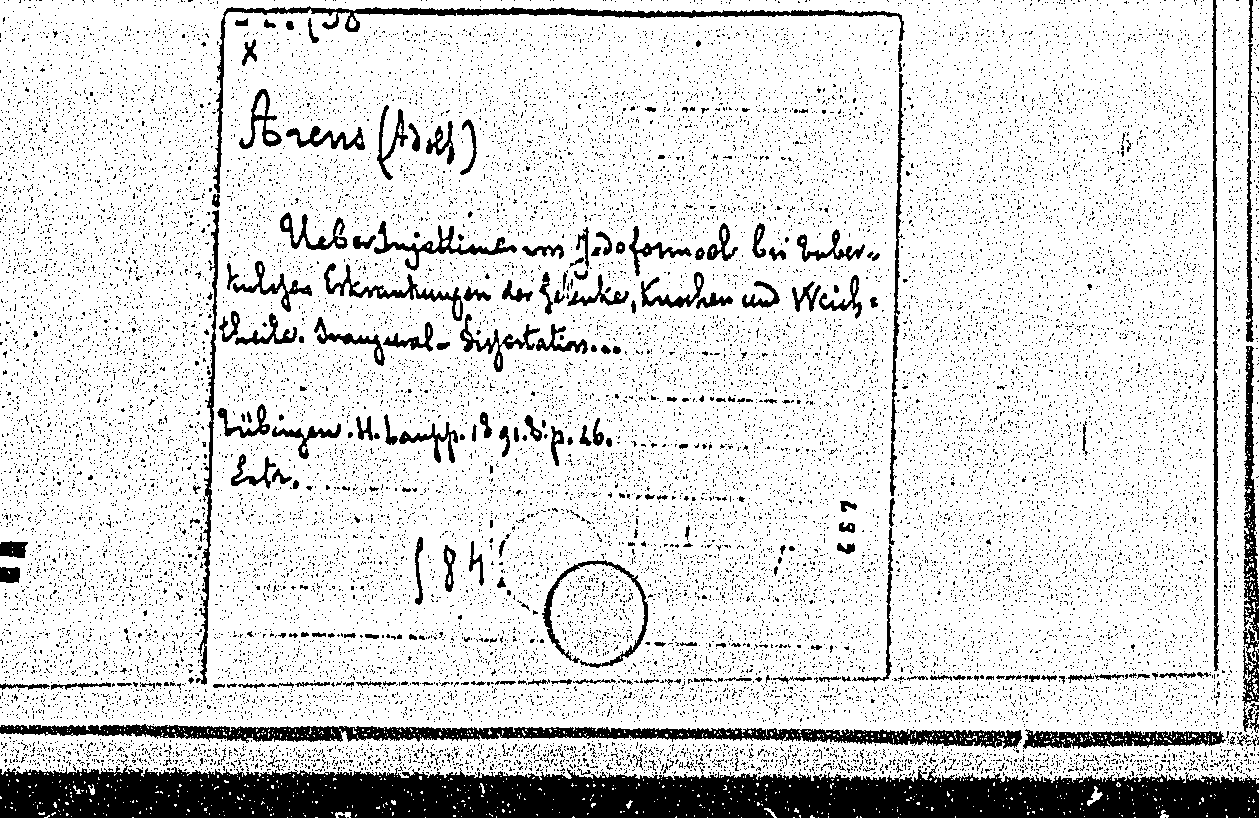 X
Arens (Adolf)
Ueber Injektionen von Jodoformoel bei tuber-
kulösen Erkrankungen der Gelenke, Knochen und Weich-
theile. Inaugural-Dissertation...
Tübingen. H. Laupp. 1891. 8. p. 26.
Extr.
84